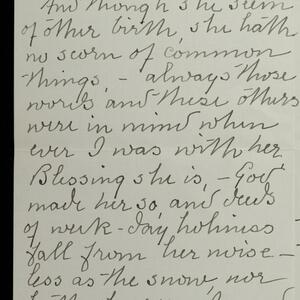 And though she seem
of other birth, she hath
no scorn of common
things, – always those
words and these others
were in mind when
ever I was with her
Blessing she is, – God
made her so, and deeds
of week-day holiness
fall from her noise–
less as the snow, nor